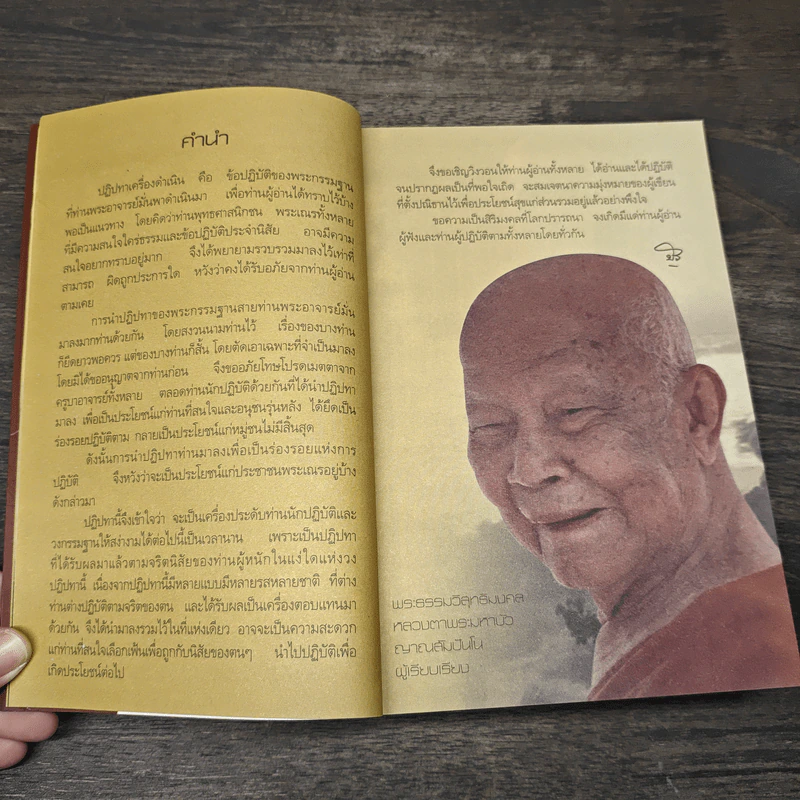 คำนำ
ปฏิปทาเครื่องดำเนิน คือ ข้อปฏิบัติของพระกรรมฐาน
ที่ท่านพระอาจารย์มั่นพาดำเนินมา เพื่อท่านผู้อ่านได้ทราบไว้บ้าง
พอเป็นแนวทาง โดยคิดว่าท่านพุทธศาสนิกชน พระเณรทั้งหลาย
ที่มีความสนใจใคร่ธรรมและข้อปฏิบัติประจำนิสัย อาจมีความ
สนใจอยากทราบอยู่มาก จึงได้พยายามรวบรวมมาลงไว้เท่าที่
สามารถ ผิดถูกประการใด หวังว่าคงได้รับอภัยจากท่านผู้อ่าน
ตามเคย
การนำปฏิปทาของพระกรรมฐานสายท่านพระอาจารย์มั่น
มาลงมากท่านด้วยกัน โดยสงวนนามท่านไว้ เรื่องของบางท่าน
ก็ยืดยาวพอควร แต่ของบางท่านก็สั้น โดยตัดเอาเฉพาะที่จำเป็นมาลง
โดยมิได้ขออนุญาตจากท่านก่อน จึงขออภัยโทษโปรดเมตตาจาก
ครูบาอาจารย์ทั้งหลาย ตลอดท่านนักปฏิบัติด้วยกันที่ได้นำปฏิปทา
มาลง เพื่อเป็นประโยชน์แก่ท่านที่สนใจและอนุชนรุ่นหลัง ได้ยึดเป็น
ร่องรอยปฏิบัติตาม กลายเป็นประโยชน์แก่หมู่ชนไม่มีสิ้นสุด
ดังนั้นการนำปฏิปทาท่านมาลงเพื่อเป็นร่องรอยแห่งการ
ปฏิบัติ จึงหวังว่าจะเป็นประโยชน์แก่ประชาชนพระเณรอยู่บ้าง
ดังกล่าวมา
ปฏิปทานี้จึงเข้าใจว่า จะเป็นเครื่องประดับท่านนักปฏิบัติและ
วงกรรมฐานให้สง่างามได้ต่อไปนี้เป็นเวลานาน เพราะเป็นปฏิปทา
ที่ได้รับผลมาแล้วตามจริตนิสัยของท่านผู้หนักในแง่ใดแห่งวง
ปฏิปทานี้ เนื่องจากปฏิปทานี้มีหลายแบบมีหลายรสหลายชาติ ที่ต่าง
ท่านต่างปฏิบัติตามจริตของตน และได้รับผลเป็นเครื่องตอบแทนมา
ด้วยกัน จึงได้นำมาลงรวมไว้ในที่แห่งเดียว อาจจะเป็นความสะดวก
แก่ท่านที่สนใจเลือกเฟ้นเพื่อถูกกับนิสัยของตนๆ นำไปปฏิบัติเพื่อ
เกิดประโยชน์ต่อไป
จึงขอเชิญวิงวอนให้ท่านผู้อ่านทั้งหลาย ได้อ่านและได้ปฏิบัติ
จนปรากฏผลเป็นที่พอใจเถิด จะสมเจตนาความมุ่งหมายของผู้เขียน
ที่ตั้งปณิธานไว้เพื่อประโยชน์สุขแก่ส่วนรวมอยู่แล้วอย่างพึงใจ
ขอความเป็นสิริมงคลที่โลกปรารถนา จงเกิดมีแด่ท่านผู้อ่าน
ผู้ฟังและท่านผู้ปฏิบัติตามทั้งหลายโดยทั่วกัน
พระธรรมวิสุทธิมงคล
หลวงตาพระมหาบัว
ญาณสัมปันโน
ผู้เรียบเรียง